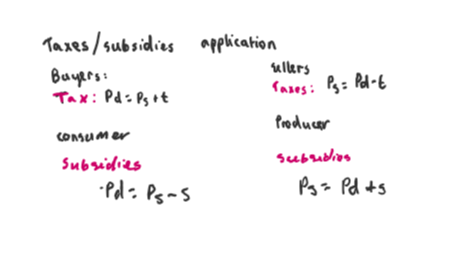 Taxes/subsidies application
Buyers:
Tax: Pd = Ps + t
consumer
Subsidies
Pd = Ps - s
sellers
Taxes: Ps = Pd - t
Producer
subsidies
Ps = Pd + s